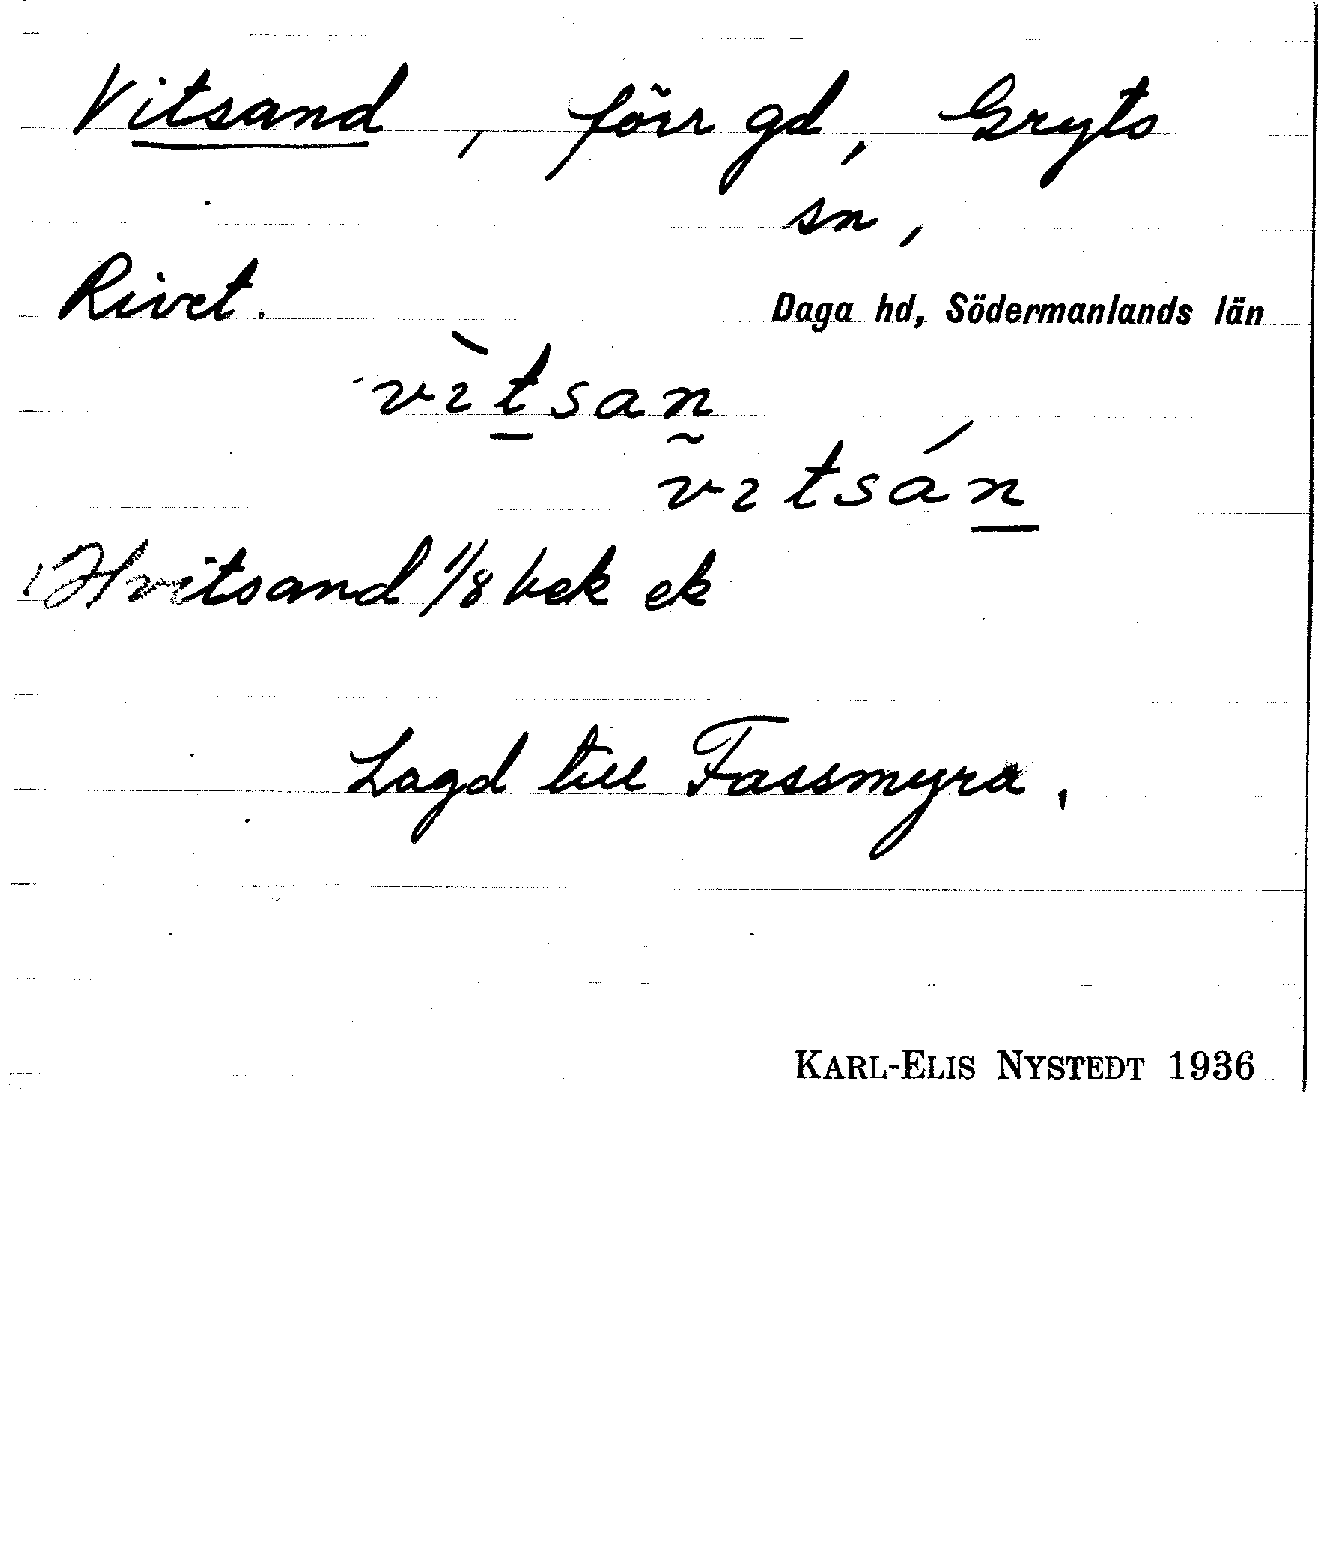 Vitsand, förr gd, Gryts
sn,
Rivet. Daga hd, Södermanlands län
vìtsan
vɪtsán
Hvitsand 1/8 hek ek
Lagd till Fassmyra.
KARL-ELIS NYSTEDT 1936